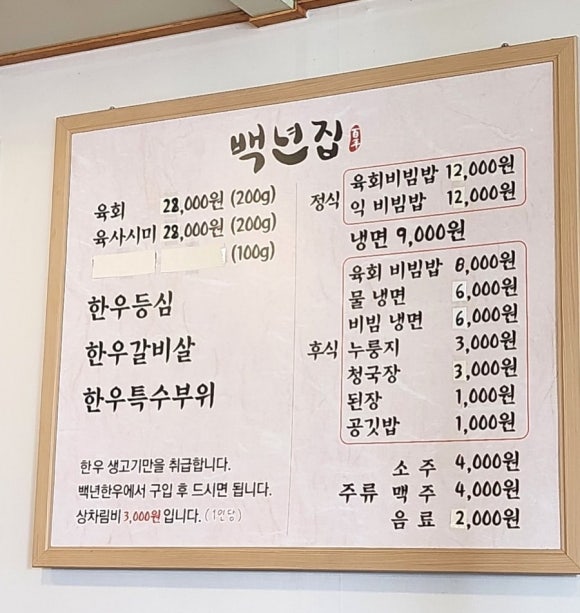 백년집
육회 28,000원 (200g)
육사시미 28,000원 (200g)
(100g)
한우등심
한우갈비살
한우특수부위
한우 생고기만을 취급합니다.
백년한우에서 구입 후 드시면 됩니다.
상차림비 3,000원 입니다. (1인당)
정식
육회비빔밥 12,000원
익 비빔밥 12,000원
냉면 9,000원
후식
육회 비빔밥 8,000원
물 냉면 6,000원
비빔 냉면 6,000원
누룽지 3,000원
청국장 3,000원
된장 1,000원
공깃밥 1,000원
주류
소주 4,000원
맥주 4,000원
음료 2,000원